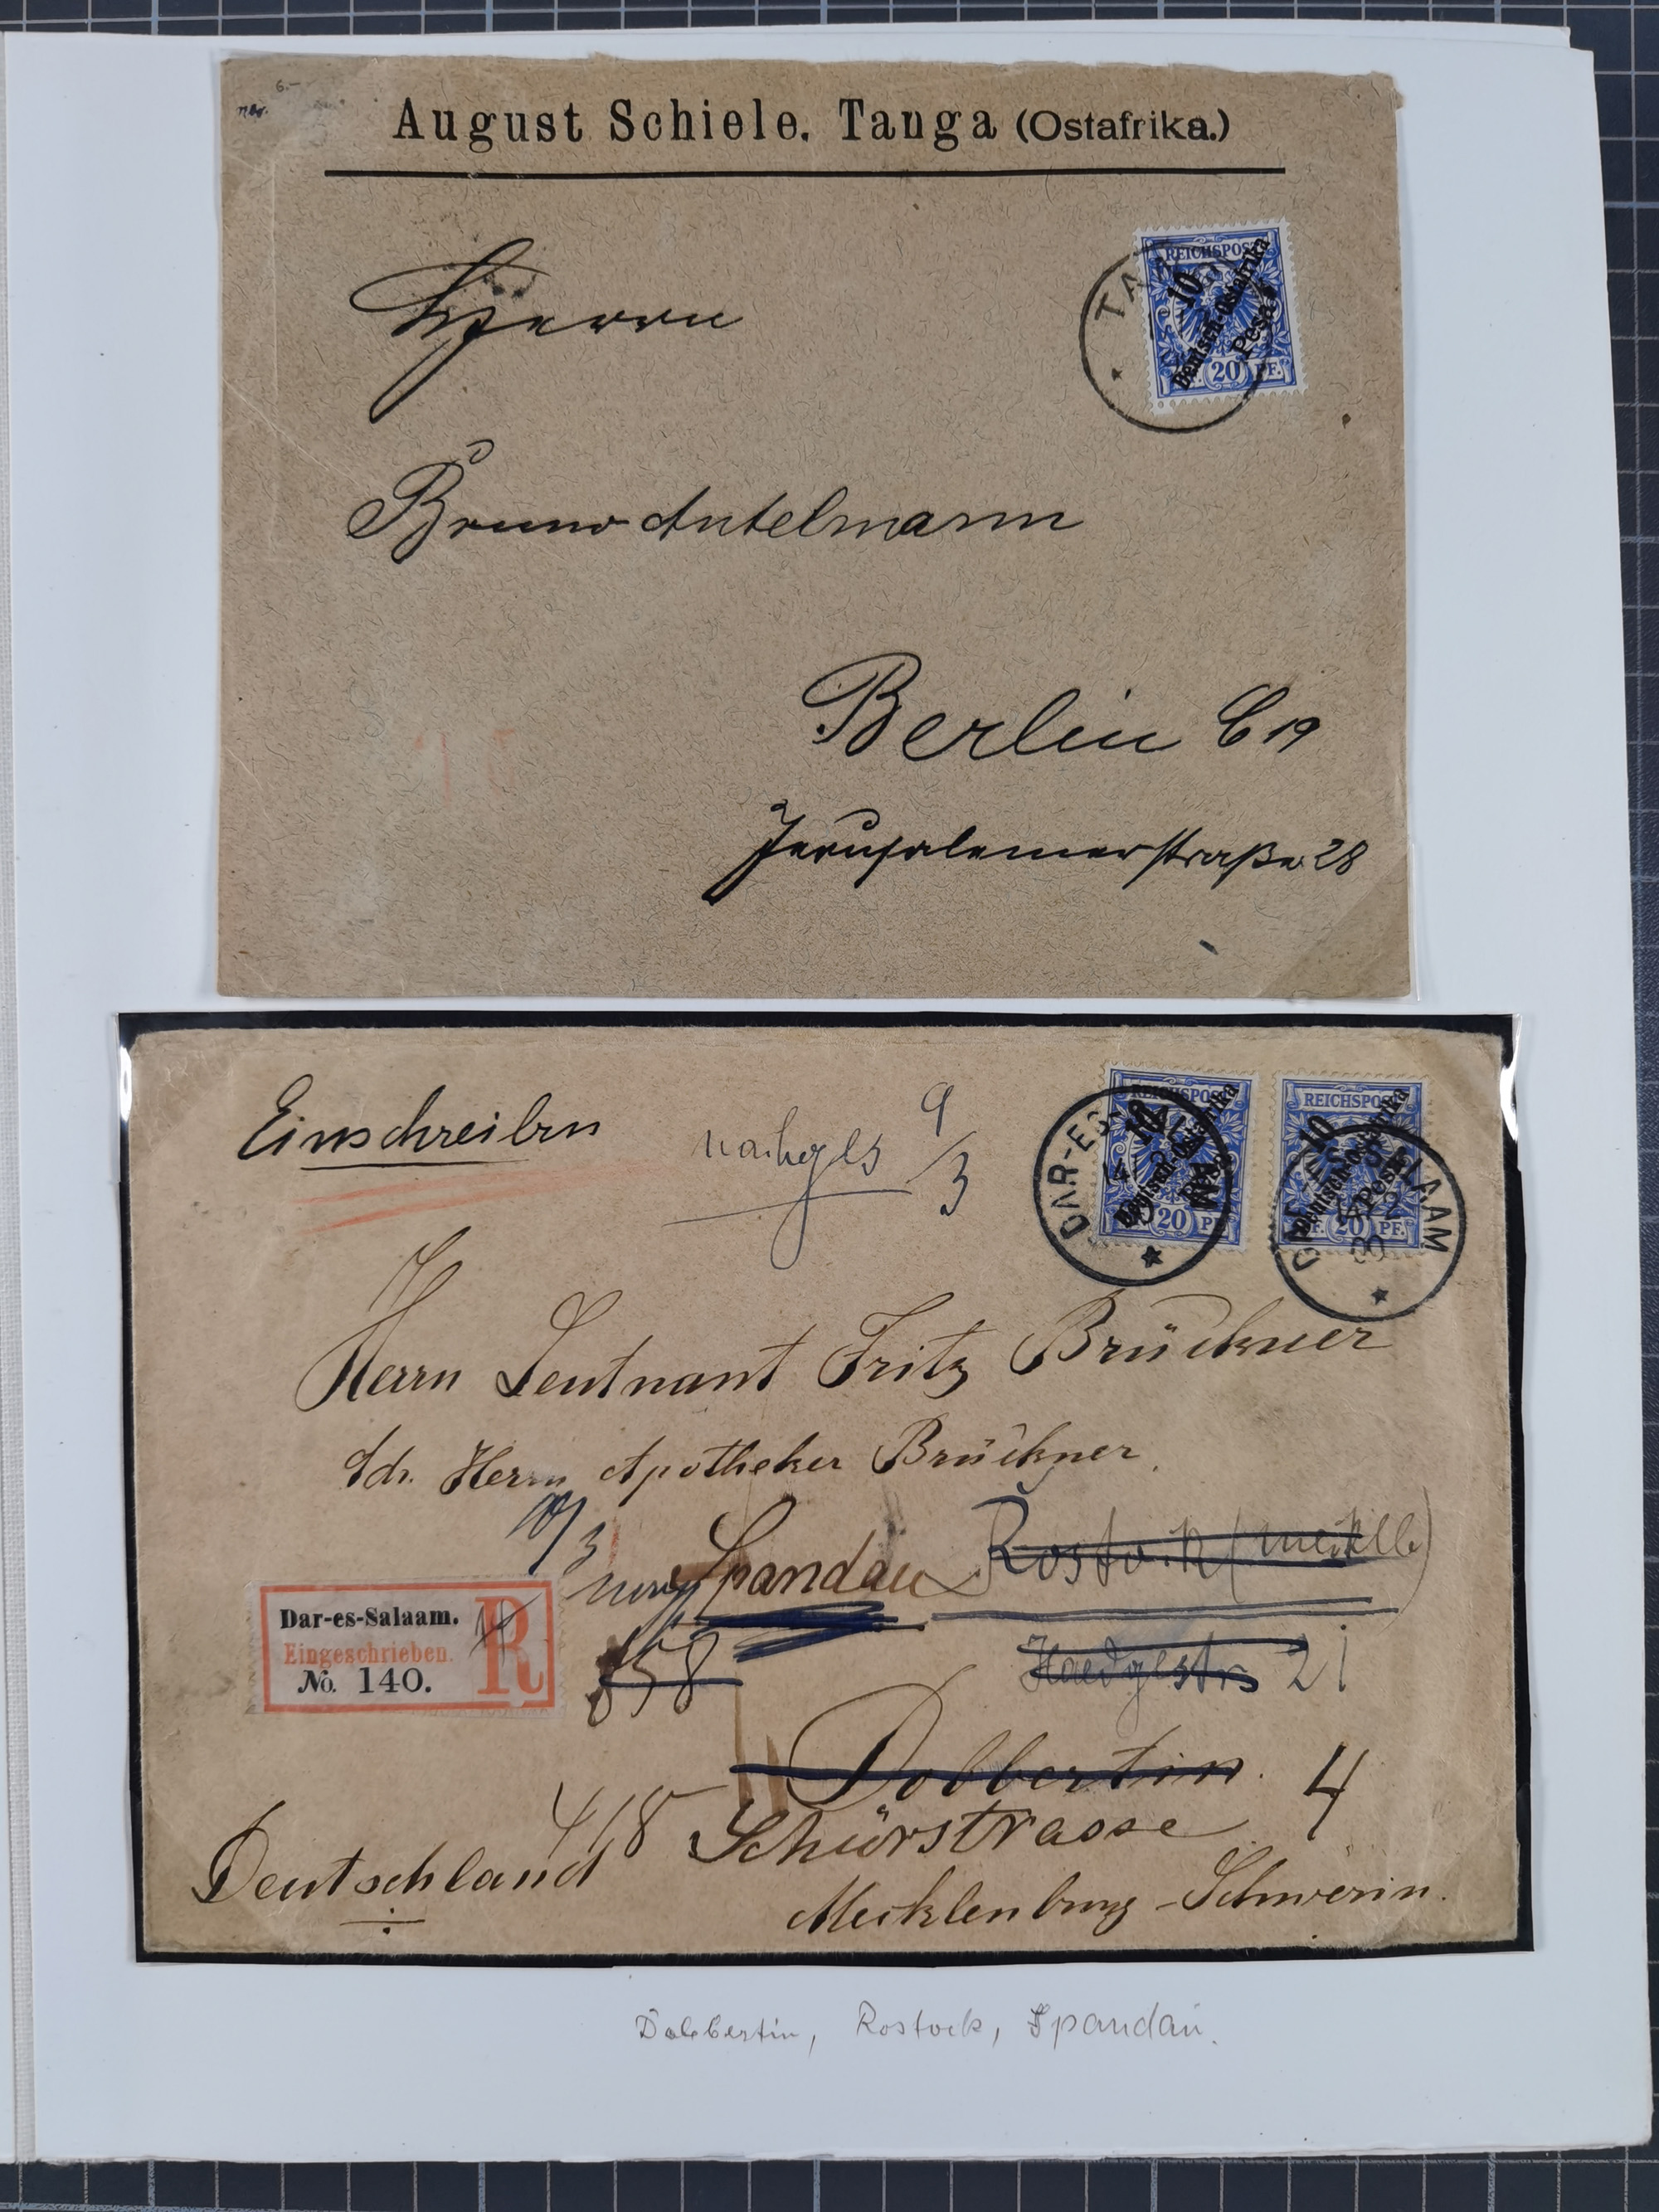 August Schiele. Tanga (Ostafrika.)
REICHSPOST
10
Deutsch-Ostafrika
Pesa
20 PF.
TA
Herrn
Bruno Antelmann
Berlin C 19
Jerusalemerstraße 28
Einschreiben
nachges 9/3
REICHSPOST
10
Deutsch-Ostafrika
Pesa
20 PF.
DAR-ES-SALAAM
REICHSPOST
10
Deutsch-Ostafrika
Pesa
20 PF.
DAR-ES-SALAAM
Herrn Leutnant Fritz Brückner
Adr. Herrn Apotheker Brückner.
Spandau Rostock (Meckllb)
Dar-es-Salaam.
Eingeschrieben.
No. 140.
R
858
Haedgestrs 21
Dobbertin.
418 Schürstrasse 4
Deutschland
Mecklenburg-Schwerin.
Dobbertin, Rostock, Spandau.